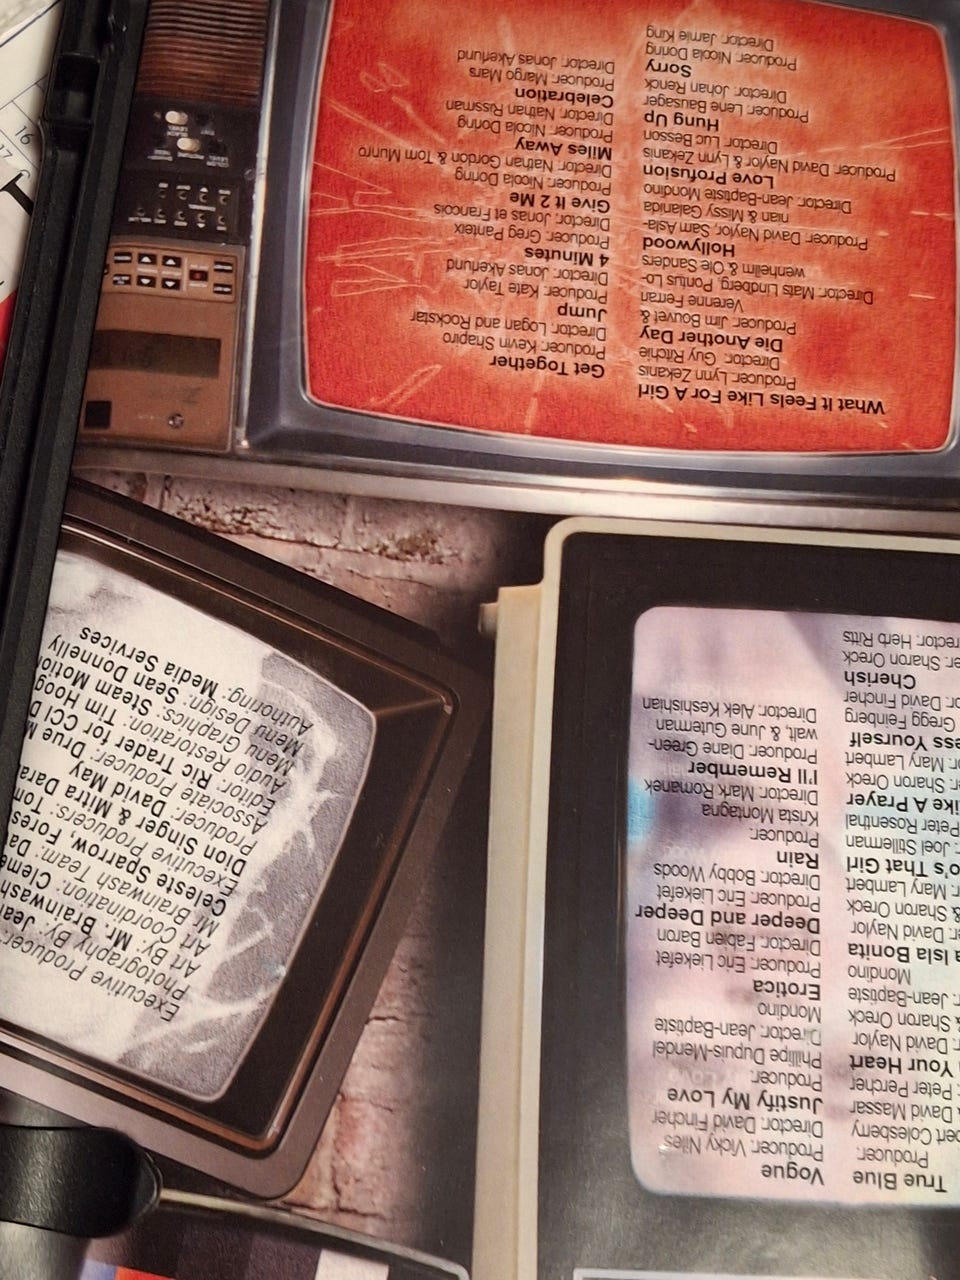 True Blue
Producer:
ert Colesberry
& David Massar
Peter Percher
Your Heart
David Naylor
& Sharon Oreck
Jean-Baptiste
Mondino
a Isla Bonita
David Naylor
& Sharon Oreck
Mary Lambert
o's That Girl
Joel Stillerman
Peter Rosenthal
Like A Prayer
Sharon Oreck
Mary Lambert
ess Yourself
Gregg Feinberg
David Fincher
Cherish
Sharon Oreck
rector: Herb Ritts
Vogue
Producer: Vicky Niles
Director: David Fincher
Justify My Love
Producer:
Phillipe Dupuis-Mendel
Director: Jean-Baptiste
Mondino
Erotica
Producer: Eric Liekefet
Director: Fabien Baron
Deeper and Deeper
Producer: Eric Liekefet
Director: Bobby Woods
Rain
Producer:
Krista Montagna
Director: Mark Romanek
I'll Remember
Producer: Diane Green-
wait, & June Guterman
Director: Alek Keshishian
Executive Producer:
Photography By: Jea
Art By: Mr. Brainwash
Art Coordination: Cleme
Mr Brainwash Team: Da
Celeste Sparrow, Fores
Executive Producers: Tom
Dion Singer & Mitra Dara
Producer: David May
Associate Producer: True M
Editor: Ric Trader for CCI D
Audio Restoration: Tim Hoog
Menu Graphics: Steam Motion
Menu Design: Sean Donnelly
Authoring: Media Services
What It Feels Like For A Girl
Producer: Lynn Zekanis
Director: Guy Ritchie
Die Another Day
Producer: Jim Bouvet &
Verenne Ferran
Director: Mats Lindberg, Pontus Lo-
wenhielm & Ole Sanders
Hollywood
Producer: David Naylor, Sam Asla-
nian & Missy Galanida
Director: Jean-Baptiste Mondino
Love Profusion
Producer: David Naylor & Lynn Zekanis
Director: Luc Besson
Hung Up
Producer: Lene Bausager
Director: Johan Renck
Sorry
Producer: Nicola Doring
Director: Jamie King
Get Together
Producer: Kevin Shapiro
Director: Logan and Rockstar
Jump
Producer: Kate Taylor
Director: Jonas Akerlund
4 Minutes
Producer: Greg Panteix
Director: Jonas et Francois
Give It 2 Me
Producer: Nicola Doring
Director: Nathan Gordon & Tom Munro
Miles Away
Producer: Nicola Doring
Director: Nathan Rissman
Celebration
Producer: Margo Mars
Director: Jonas Akerlund
16
17